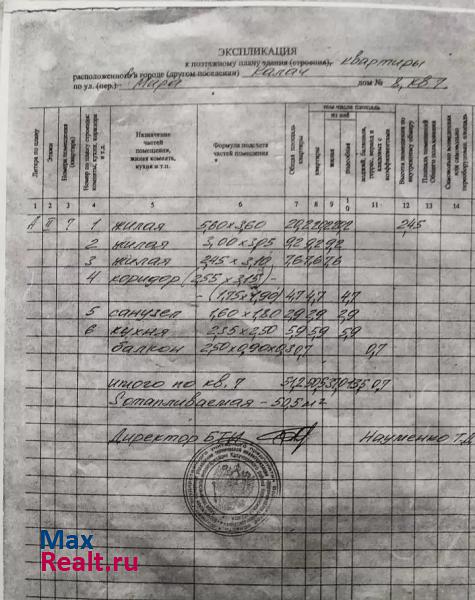 ЭКСПЛИКАЦИЯ
к поэтажному плану здания (строения), квартиры
расположенного в городе (другом поселении) Калач
по ул. (пер.) Мира дом № 8, кв 7
Литера по плану
Этажи
Номера помещения (квартира)
Номер по плану строения комнаты, кухни, коридора и т.п.
Назначение частей помещения, жилая комната, кухня и т.п.
Формула подсчета частей помещения
Общая площадь квартиры
в том числе площадь
из неё
квартиры
жилая
подсобная
лоджии, балконов, террас, веранд и кладовых с коэффициентами
Высота помещения по внутреннему обмеру
Площадь помещений общего пользования
1 2 3 4 5 6 7 8 9 10 11 12 13 14
А II 7 1 жилая 5,60 x 3,60 20,2 20,2 20,2 2,45
2 жилая 3,00 x 3,05 9,2 9,2 9,2
3 жилая 2,45 x 3,10 7,6 7,6 7,6
4 коридор (2,55 x 3,15) -
- (1,75 x 1,90) 4,7 4,7 4,7
5 санузел 1,60 x 1,80 2,9 2,9 2,9
6 кухня 2,35 x 2,50 5,9 5,9 5,9
балкон 2,50 x 0,90 x 0,3 0,7 0,7
итого по кв. 7 51,2 50,5 37,0 13,5 0,7
S отапливаемая - 50,5 м²
Директор БТИ Науменко Т.Д.
Max
Realt.ru